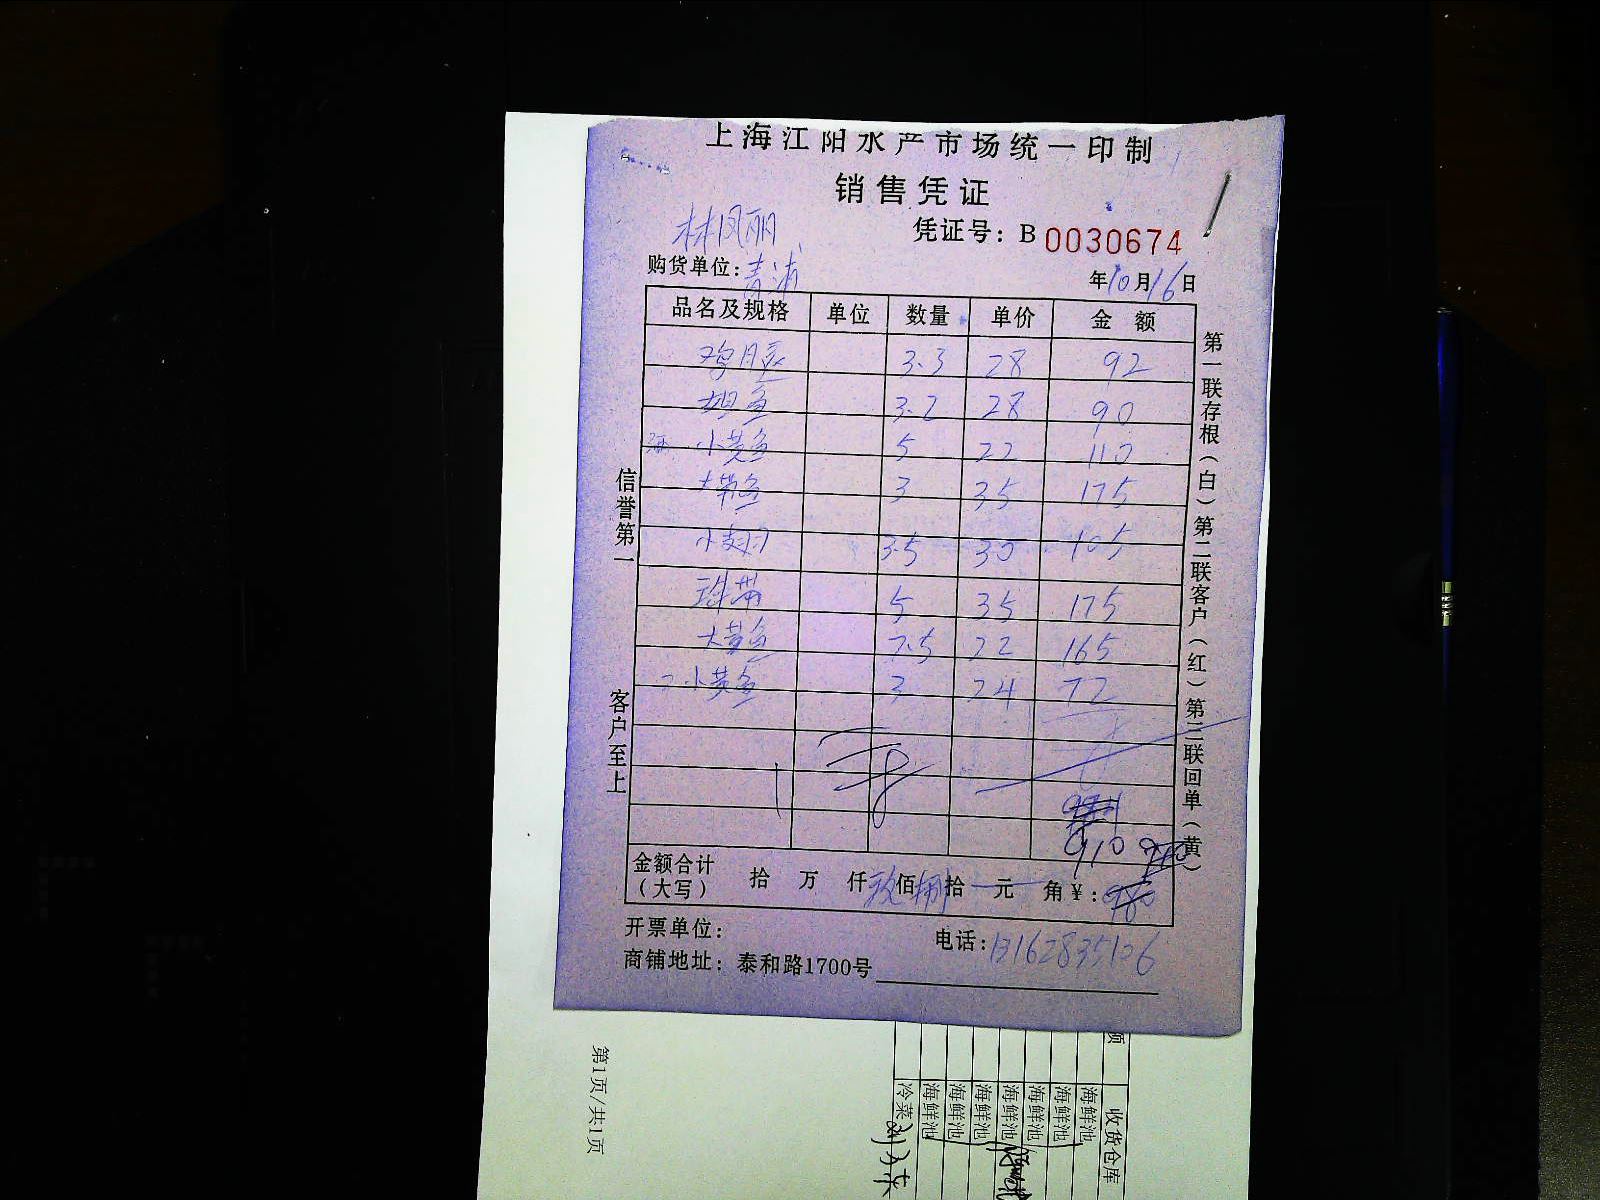 上海江阳水产市场统一印制
销售凭证
林凤丽
凭证号：B 0030674
购货单位：青浦
年10月16日
品名及规格 单位 数量 单价 金额
3.3 28 92
鱼 3.2 28 90
小黄鱼 5 22 110
大带鱼 3 35 175
小 3.5 30 105
珠带 5 35 175
大黄鱼 7.5 22 165
小黄鱼 3 24 72
910
金额合计（大写） 拾 万 仟 玖佰捌拾 元 角 ¥：980
开票单位：
电话：13162835106
商铺地址：泰和路1700号
信誉第一
客户至上
第一联存根（白）第二联客户（红）第三联回单（黄）
额
收货仓库
海鲜池
海鲜池
海鲜池
海鲜池
海鲜池
海鲜池
海鲜池
冷菜
第1页/共1页